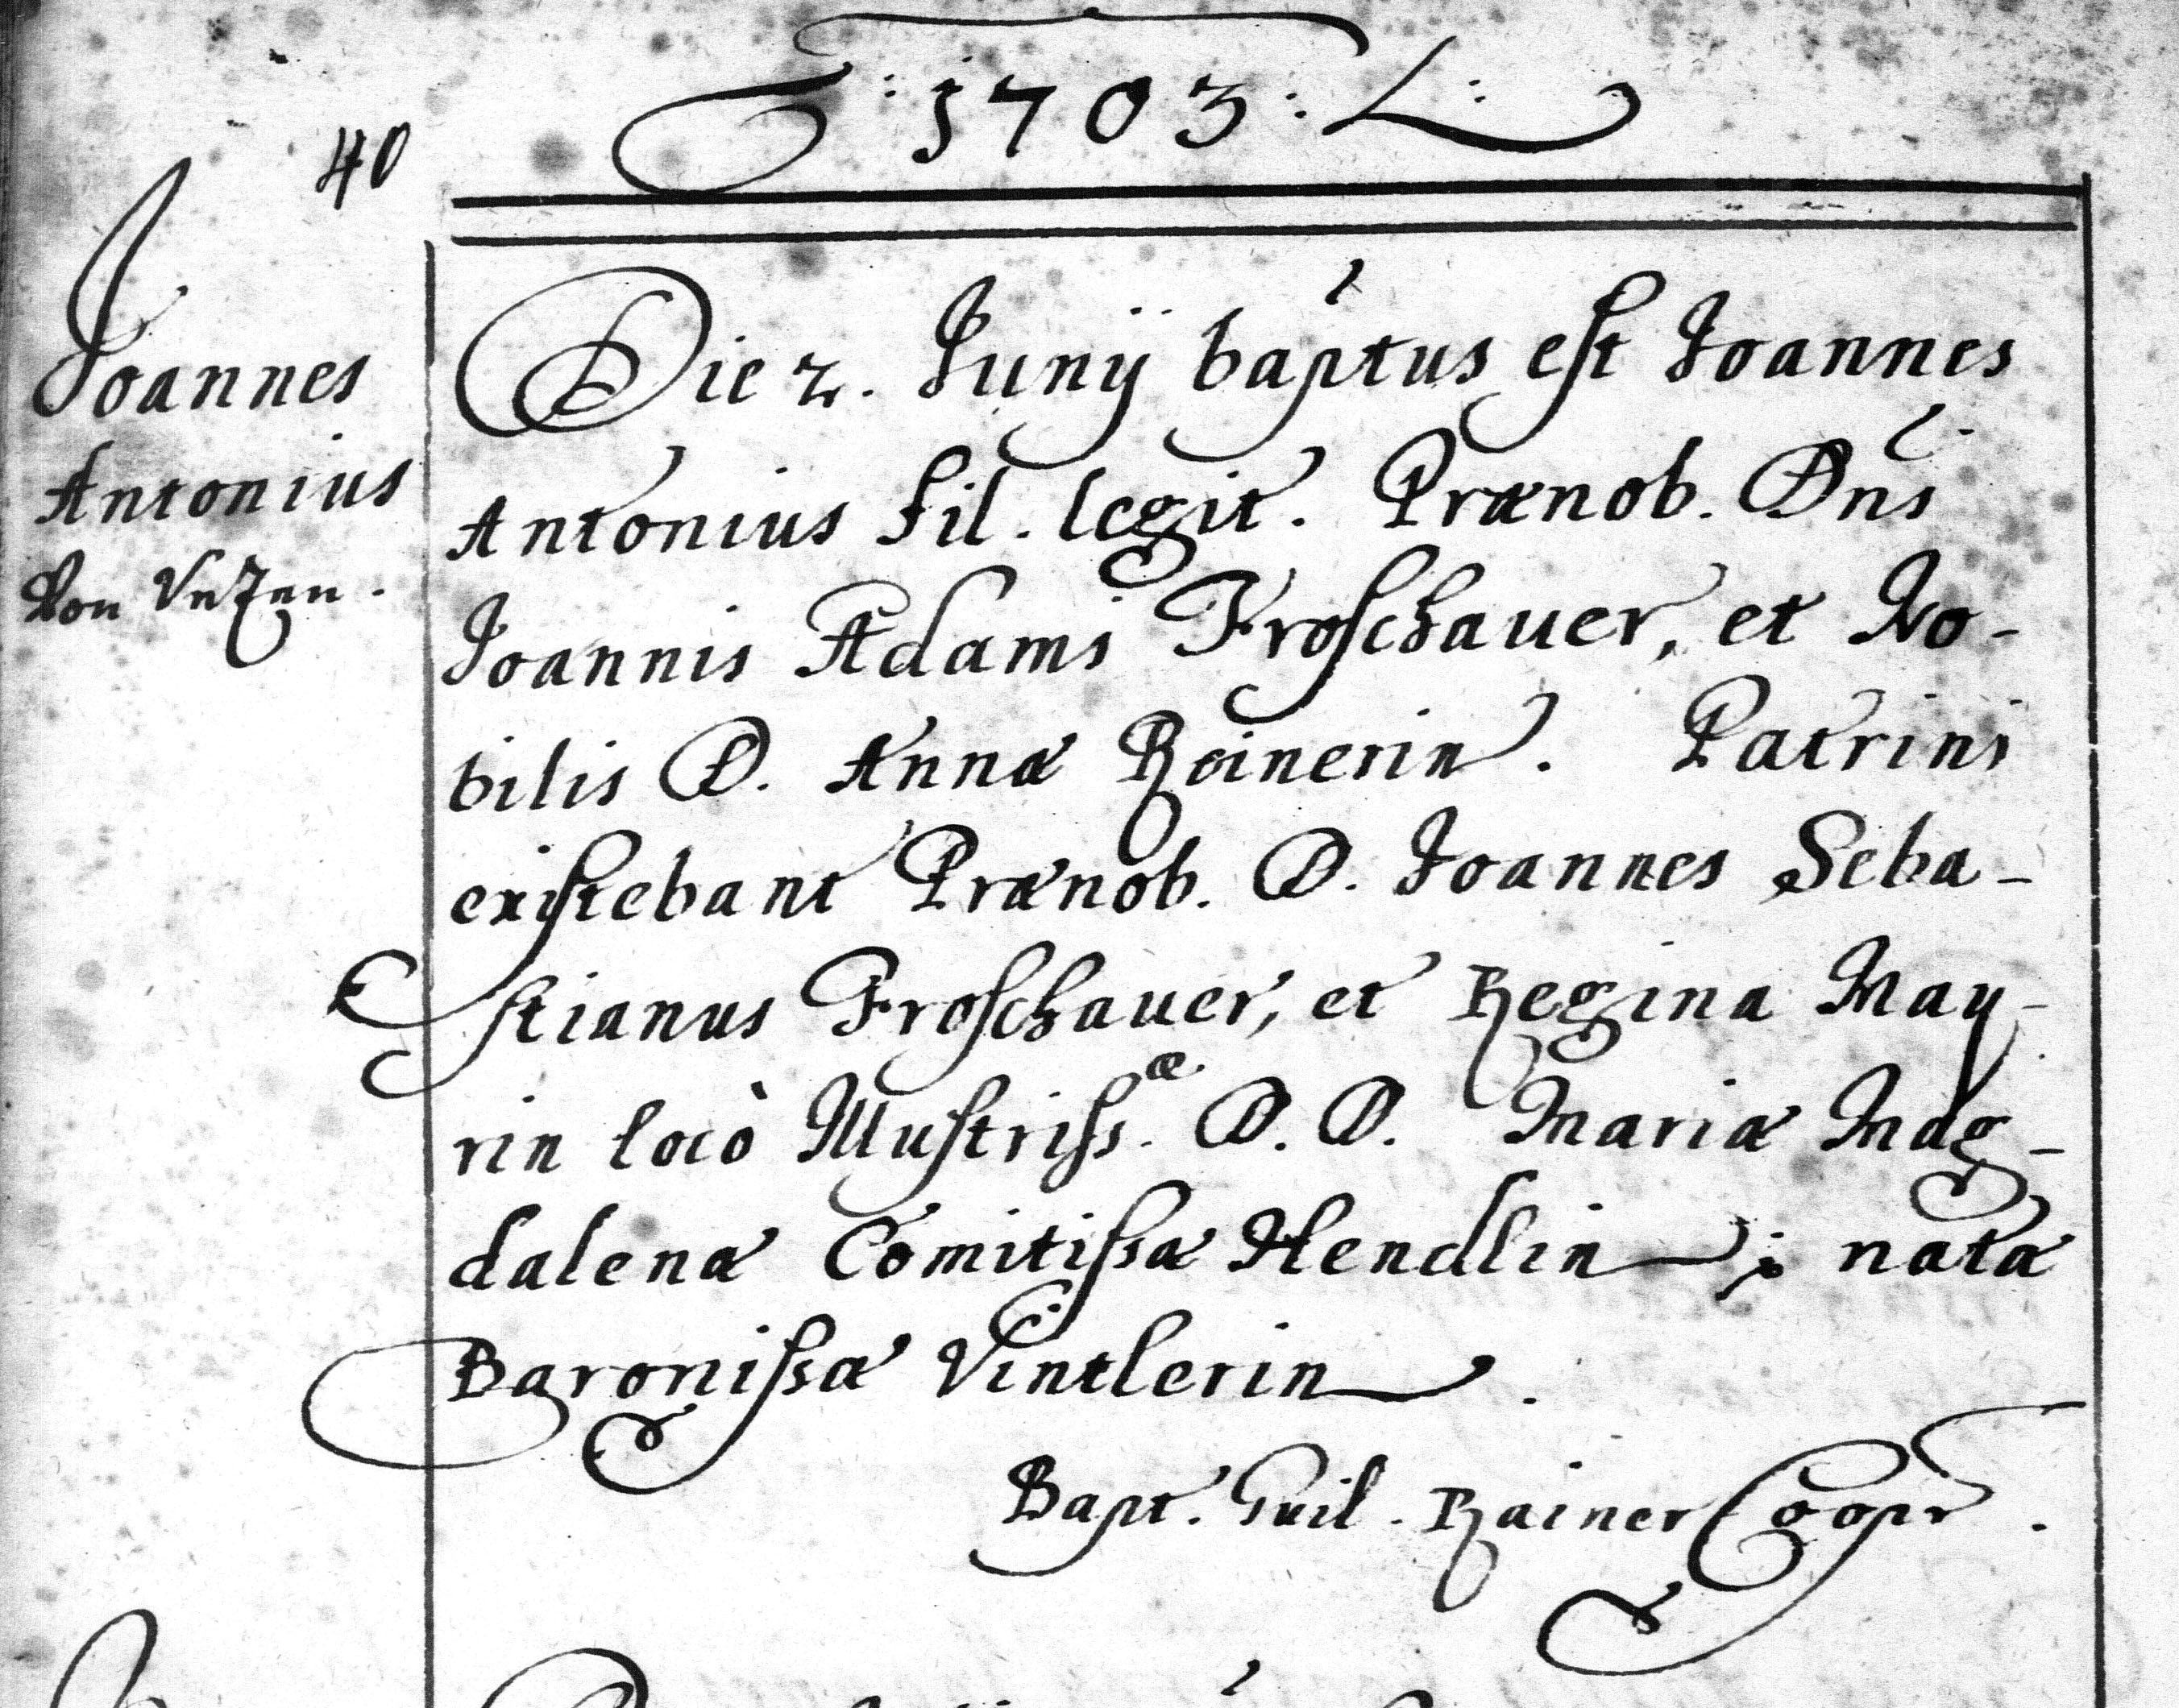 : 1703 :
40
Joannes
Antonius
Von
Die 2. Junÿ baptus est Joannes
Antonius fil. legit. Prænob. Dni
Joannis Adami Froschauer, et No-
bilis D. Annæ Reinerin. Patrini
existebant Prænob. D. Joannes Seba-
stianus Froschauer, et Regina May-
rin locò Illustriss.æ D. D. Mariæ Mag-
dalenæ Comitissæ Hendlin; natæ
Baronissæ Vintlerin.
Bapt. Guil. Rainer Coopr.